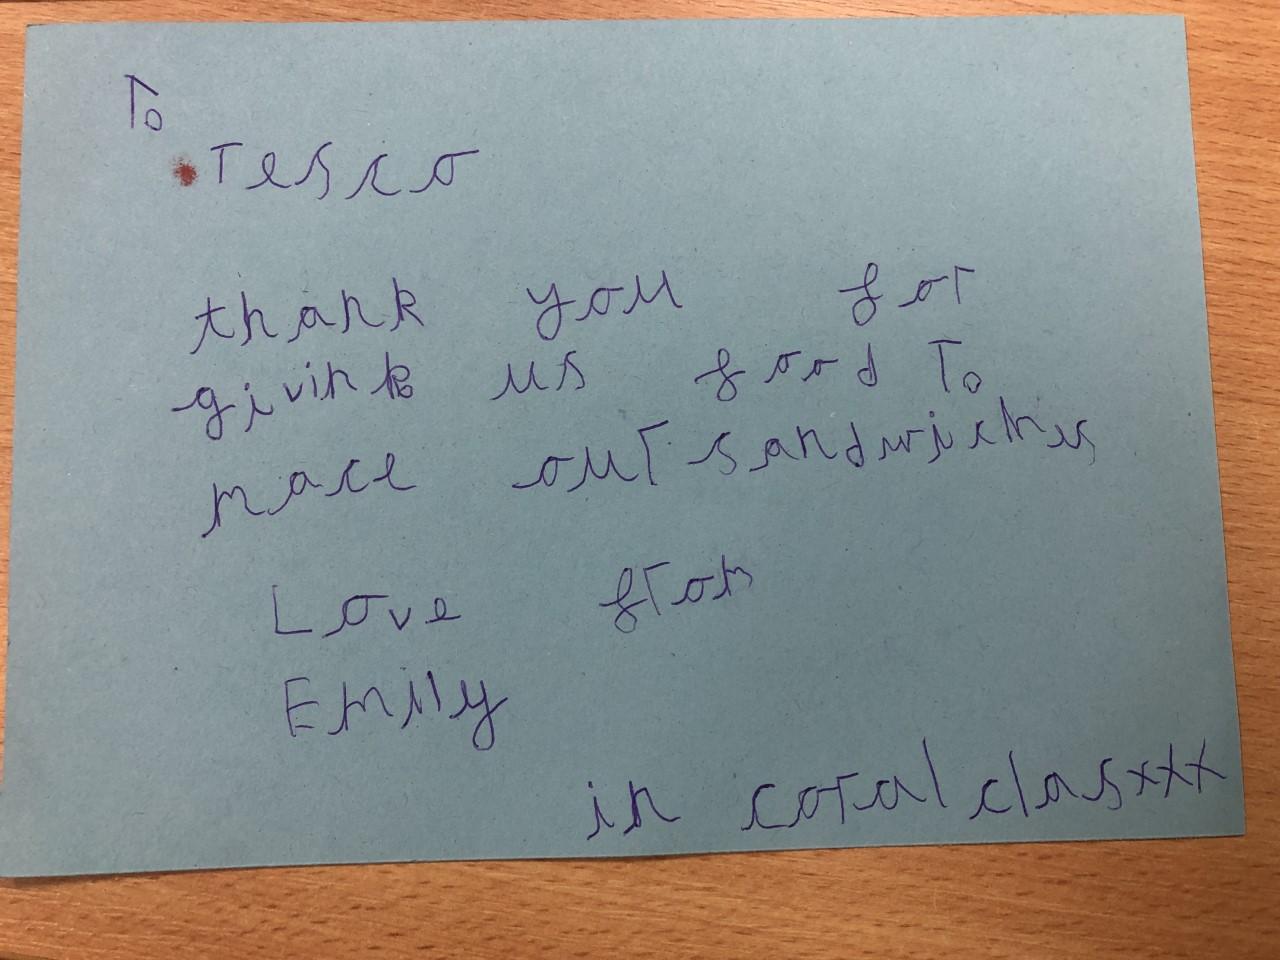 To
Tesco
thank you for
givink us food To
mace our sandwichus
Love from
Emily
in coral clasxxx